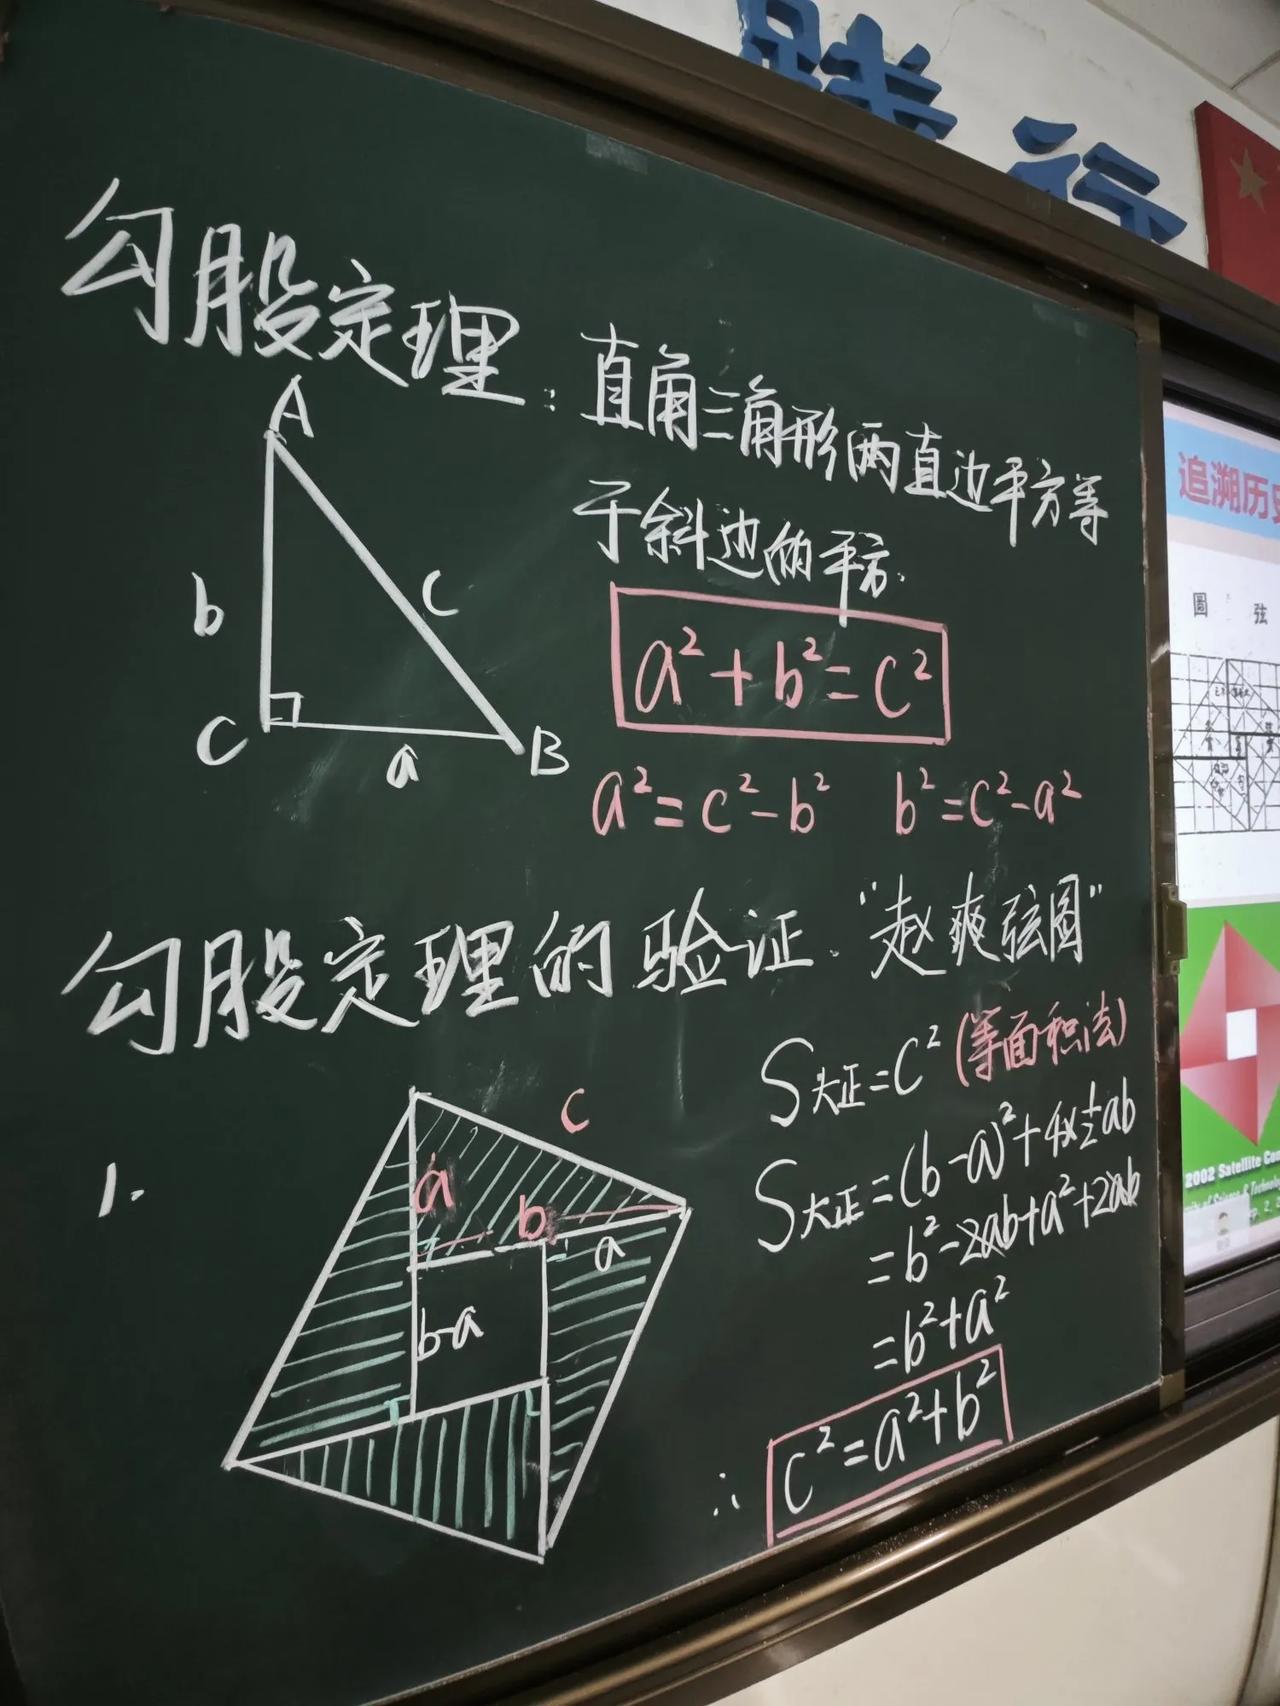 践行
勾股定理：直角三角形两直边平方等
于斜边的平方.
A
b
c
C
a
B
a²+b²=c²
a²=c²-b² b²=c²-a²
勾股定理的验证."赵爽弦图"
1.
c
a
b
a
b-a
S大正=c²(等面积法)
S大正=(b-a)²+4×½ab
=b²-2ab+a²+2ab
=b²+a²
∴ c²=a²+b²
追溯历史
圆 弦
2002 Satellite Con